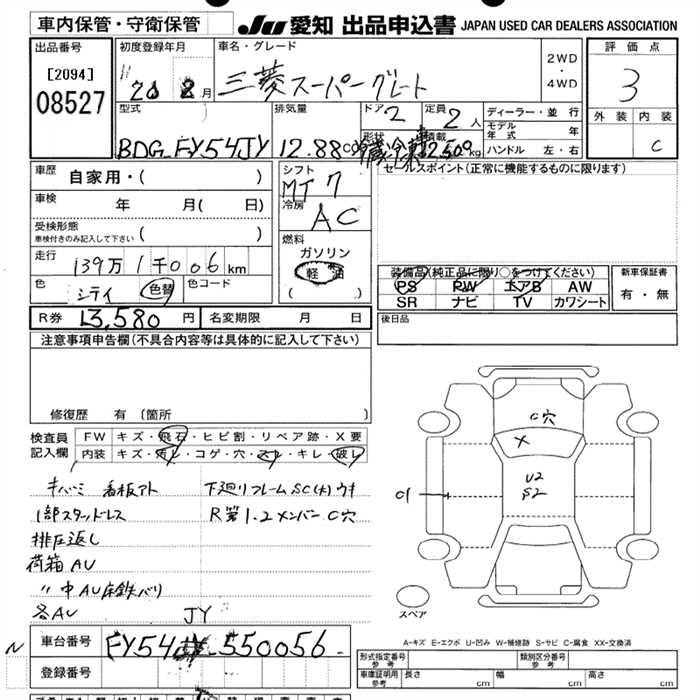 車内保管・守衛保管
JU 愛知 出品申込書 JAPAN USED CAR DEALERS ASSOCIATION
出品番号
[2094]
08527
初度登録年月
20 8月
車名・グレード
三菱スーパーグレート
2WD
・
4WD
評価点
3
外装 内装
C
型式
BDG-FY54JY
排気量
12.88cc
ドア 2
定員 2人
形状
冷蔵冷凍車
積載
12500kg
ディーラー・並行
モデル年式 年
ハンドル 左・右
車歴 自家用・( )
車検 年 月( 日)
受検形態
車検付きのみ記入して下さい ( )
走行 139万1千006km
色 シティ 色替 色コード
シフト
MT 7
冷房
AC
燃料
ガソリン
軽油
( )
セールスポイント(正常に機能するものに限ります)
装備品(純正品に限り○をつけてください)
PS PW エアB AW
SR ナビ TV カワシート
新車保証書
有・無
R券 13,580円 名変期限 月 日
後日品
注意事項申告欄(不具合内容等は具体的に記入して下さい)
修復歴 有 (箇所 )
検査員記入欄
FW キズ・飛石・ヒビ割・リペア跡・X要
内装 キズ・汚レ・コゲ・穴・スレ・キレ・破レ
キバミ 看板アト
下廻りフレームSC(大)ウキ
1部スタッドレス
R第1.2メンバーC穴
排圧返し
荷箱AU
〃中AU床鉄バリ
各AU
C穴
X
U2
S2
C1
スペア
A-キズ E-エクボ U-凹み W-補修跡 S-サビ C-腐食 XX-交換済
N
車台番号 FY54JY-550056
登録番号
形式指定番号 参考
類別区分番号 参考
車庫証明用 参考 長さ cm 幅 cm 高さ cm